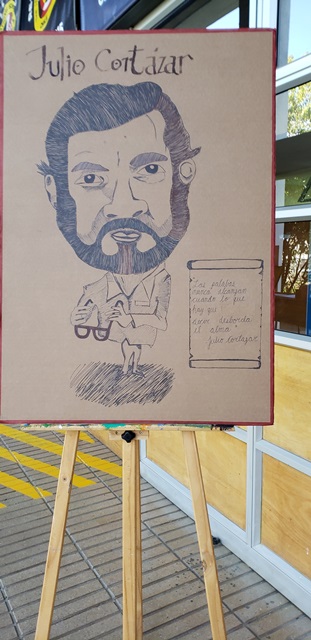 Julio Cortázar
"Las palabras
nunca alcanzan
cuando lo que
hay que
decir desborda
el alma"
Julio Cortázar